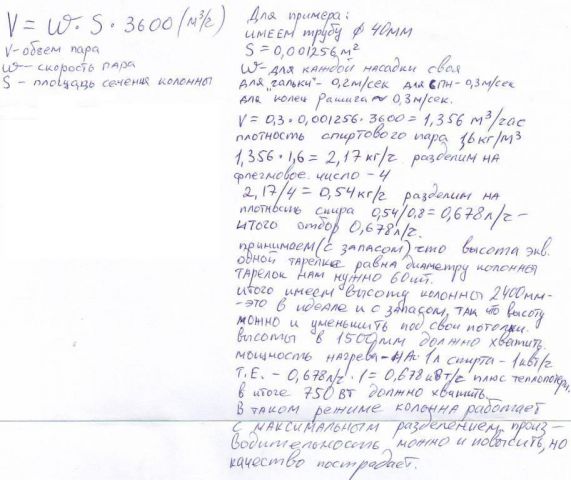 V = W · S · 3600 (м³/г)
V - обьем пара
W - скорость пара
S - площадь сечения колонны
Для примера:
имеем трубу ф 40мм
S = 0,001256 м²
W - для каждой насадки своя
для "гальки" - 0,2м/сек для СПН - 0,3м/сек
для колец Рашига ~ 0,3м/сек.
V = 0,3 · 0,001256 · 3600 = 1,356 м³/час
плотность спиртового пара 1,6 кг/м³
1,356 · 1,6 = 2,17 кг/г. разделим на
флегмовое число - 4
2,17/4 = 0,54 кг/г разделим на
плотность спирта 0,54/0,8 = 0,678 л/г -
итого отбор 0,678 л/г.
принимаем (с запасом) что высота экв.
одной тарелке равна диаметру колонны
тарелок нам нужно 60 шт.
итого имеем высоту колонны 2400мм -
- это в идеале и с запасом, так что высоту
можно и уменьшить под свои потолки.
высоты в 1500мм должно хватить.
мощность нагрева - на 1л спирта - 1квт/г
т.е. - 0,678 л/г · 1 = 0,678 кВт/г плюс теплопотери,
в итоге 750 Вт должно хватить.
В таком режиме колонна работает
с максимальным разделением, произ-
водительность можно и повысить, но
качество пострадает.